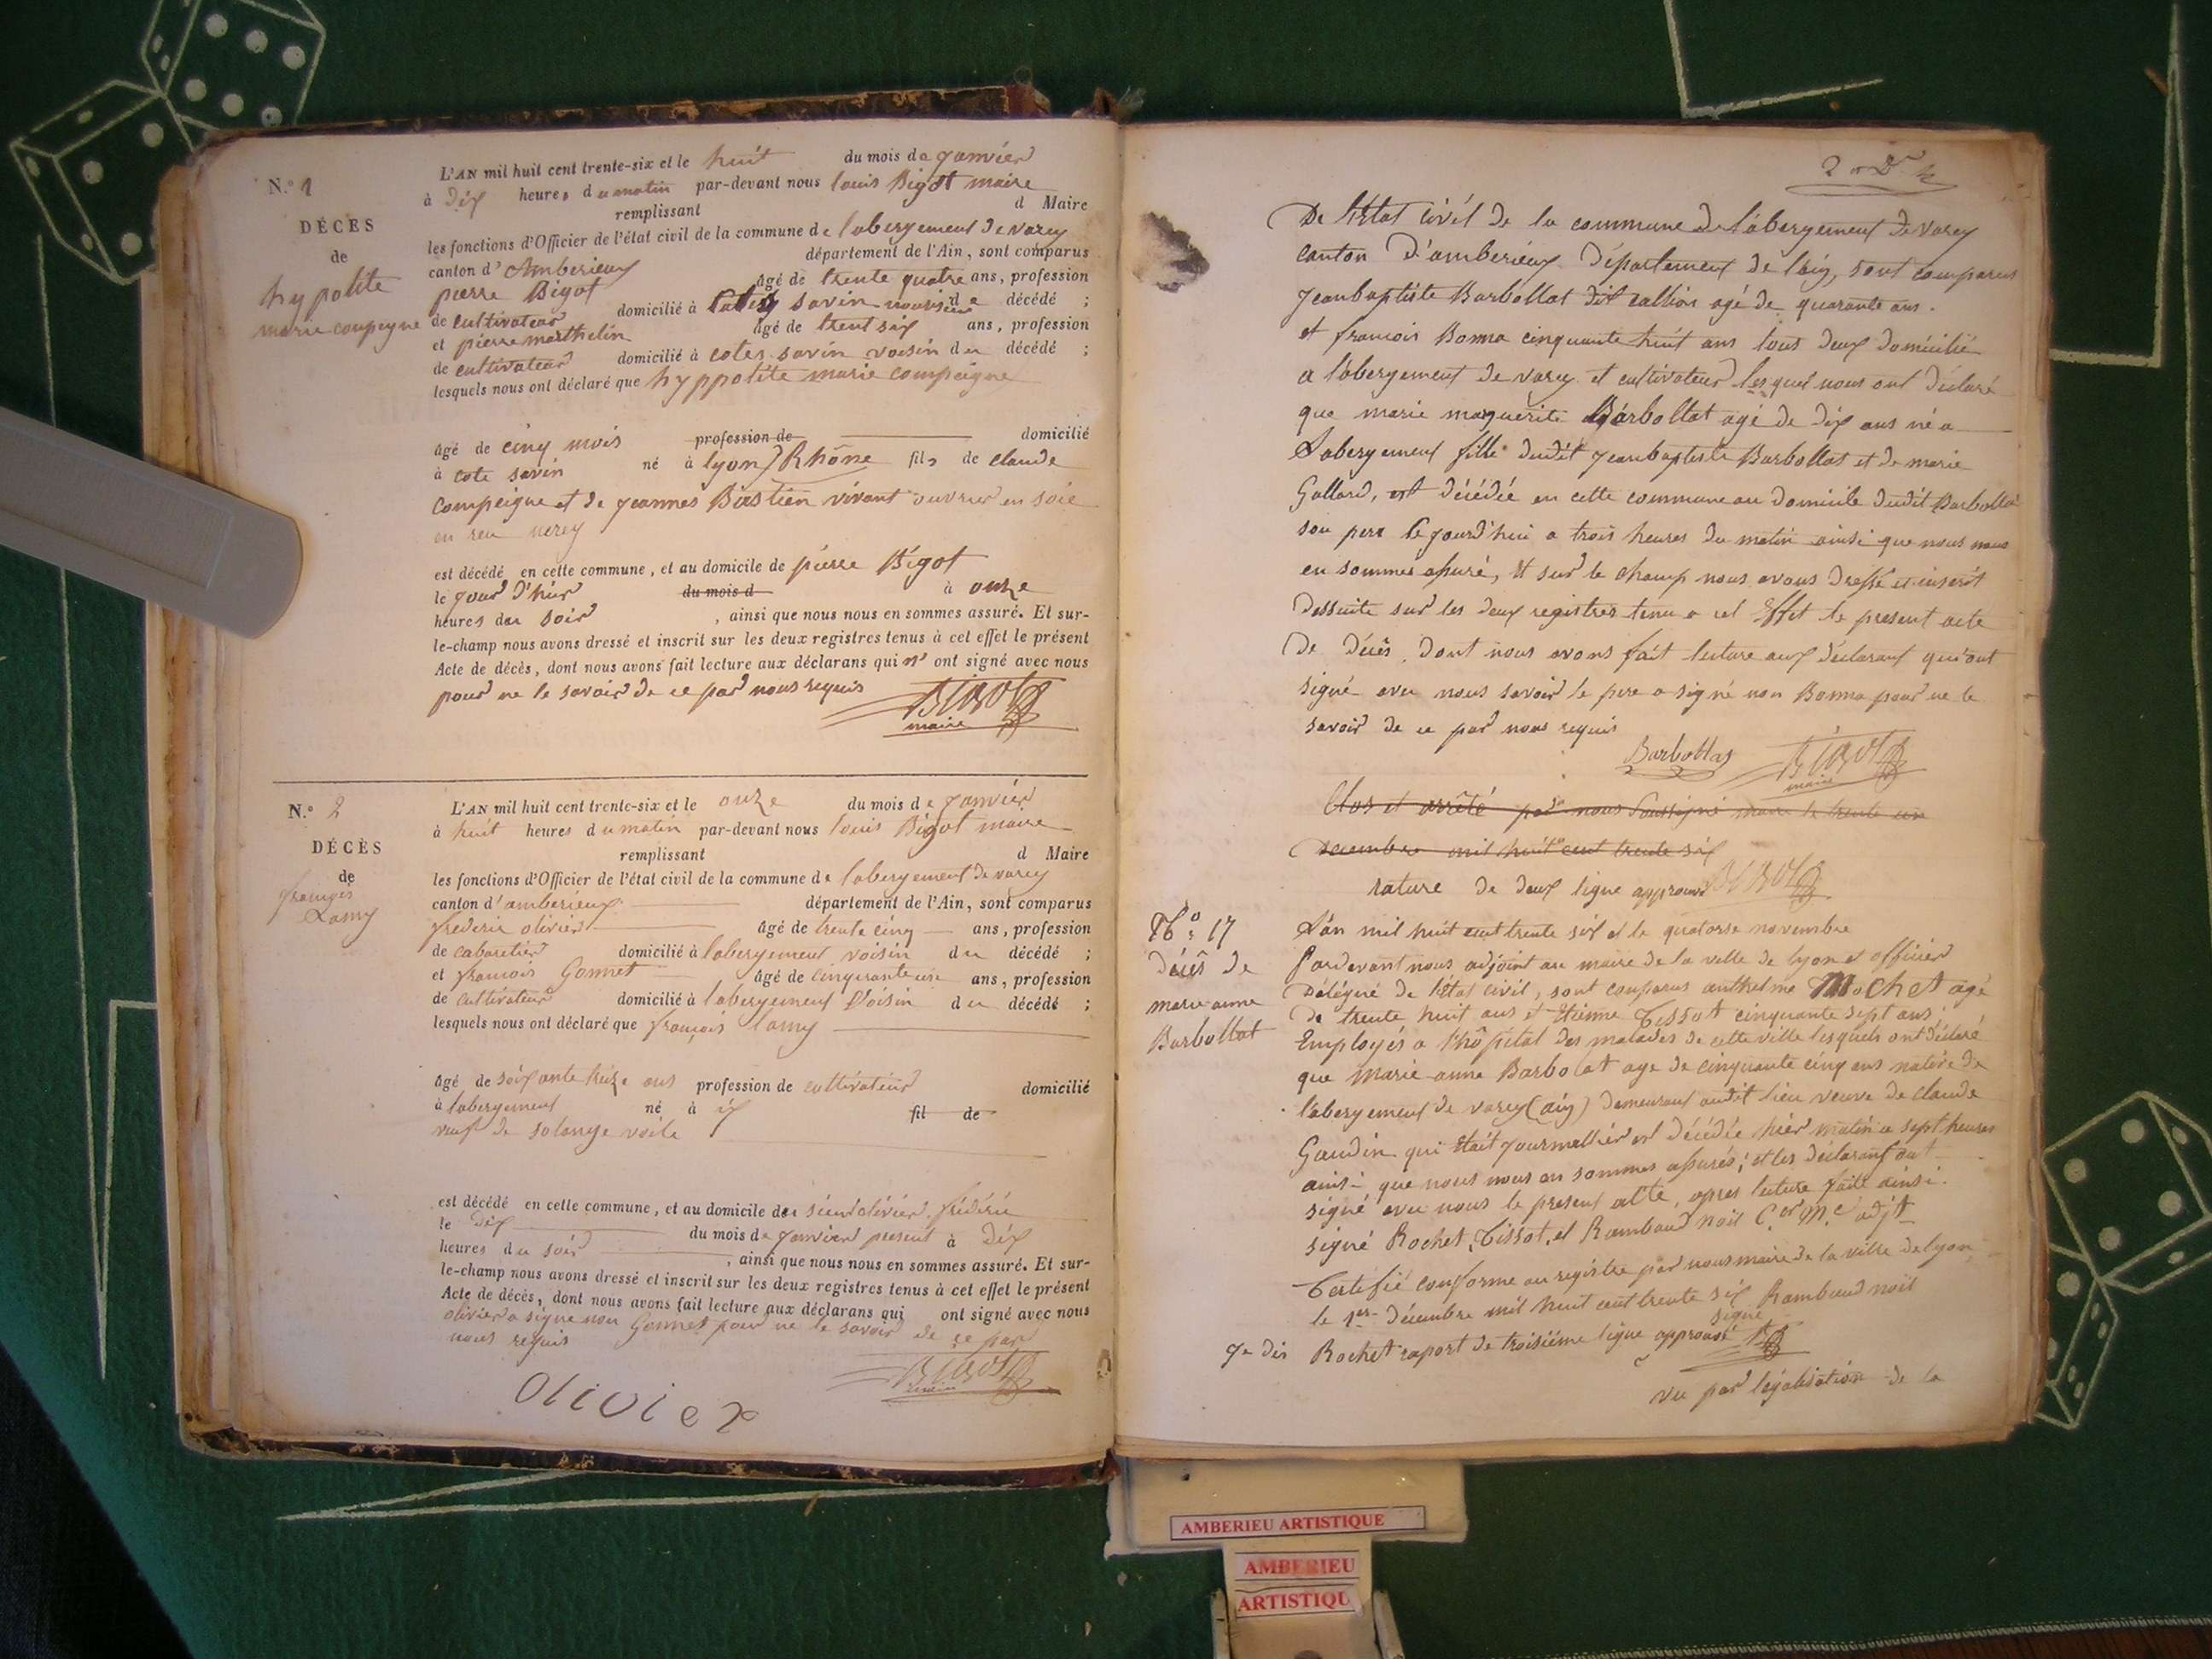 N.° 1
DÉCES
de
hypolite
marie compeigne
L'AN mil huit cent trente-six et le huit du mois de Janvier
à dix heures du matin par-devant nous louis Bigot maire
remplissant d Maire
les fonctions d'Officier de l'état civil de la commune de labergement de varey
canton d'Amberieux département de l'Ain, sont comparus
pierre Bigot âgé de trente quatre ans, profession
de cultivateur domicilié à savin décédé ;
et pierre marthelin âgé de trent six ans, profession
de cultivateur domicilié à cotes savin voisin du décédé ;
lesquels nous ont déclaré que hyppolite marie compeigne
âgé de cinq mois profession de domicilié
à cote savin né à lyon) Rhône fils de claude
compeigne et de jeannes Bastien vivant ouvrier en soie
en reu nerey
est décédé en cette commune, et au domicile de pierre Bigot
le jour d'hier du mois d à onze
heures du soir , ainsi que nous nous en sommes assuré. Et sur-
le-champ nous avons dressé et inscrit sur les deux registres tenus à cet effet le présent
Acte de décès, dont nous avons fait lecture aux déclarans qui n' ont signé avec nous
pour ne le savoir de ce par nous requis
Bigot
maire
N.° 2
DÉCÈS
de
françois
Lamy
L'AN mil huit cent trente-six et le onze du mois de Janvier
à huit heures du matin par-devant nous louis Bigot maire
remplissant d Maire
les fonctions d'Officier de l'état civil de la commune de labergement de varey
canton d'amberieux département de l'Ain, sont comparus
frederic olivier âgé de trente cinq ans, profession
de cabaretier domicilié à labergement voisin du décédé ;
et françois Gonnet âgé de cinquante un ans, profession
de cultivateur domicilié à labergement voisin du décédé ;
lesquels nous ont déclaré que françois lamy
âgé de soixante treize ans profession de cultivateur domicilié
à labergement né à if fil de
veuf de solange voile
est décédé en cette commune, et au domicile du sieur olivier frédéric
le dix du mois de janvier present à dix
heures du soir , ainsi que nous nous en sommes assuré. Et sur-
le-champ nous avons dressé et inscrit sur les deux registres tenus à cet effet le présent
Acte de décès, dont nous avons fait lecture aux déclarans qui ont signé avec nous
olivier a signé non Gonnet pour ne le savoir de ce par
nous requis
Bigot
maire
Olivier
De l'Etat civil de la commune de l'abergement de varey
canton d'amberieux Département de l'ain, sont comparus
jeanbaptiste Barbollat dit callion agé de quarante ans.
et francois Bonna cinquante huit ans tous deux domicilié
a l'abergement de varey et cultivateur lesquel nous ont déclaré
que marie marguerite Barbollat agé de dix ans né a
Labergement fille dudit jeanbaptiste Barbollat et de marie
Gallard, est décédée en cette commune au domicile dudit Barbollat
son pere ce jourd'hui a trois heures du matin ainsi que nous nous
en sommes assuré, Et sur le champ nous avons dressé et inscrit
dessuite sur les deux registres tenu a cet Effet le present acte
De Décès, dont nous avons fait lecture aux déclarant qu'ont
signé avec nous savoir le pere a signé non Bonna pour ne le
savoir de ce par nous requis
Barbollat Bigot
maire
Clos et arrêté par nous soussigné maire le trente un
Decembre mil huit cent trente six
rature de deux ligne approuvé Bigot
N°. 17
décès de
marie anne
Barbollat
L'an mil huit cent trente six et le quatorse novembre
Pardevant nous adjoint au maire de la ville de lyon et officier
Délégué de l'Etat civil, sont comparus anthelme Mochet agé
de trente huit ans et Etienne Tissot cinquante sept ans,
Employés a l'hôpital des malades de cette ville lesquels ont déclaré
que Marie anne Barbolat age de cinquante cinq ans native de
l'abergement de varey (ain) demeurant audit lieu veuve de claude
Gaudin qui était journallier est décédée hier matin a sept heures
ainsi que nous nous en sommes assurés; et les déclarant ont
signé avec nous le present acte, apres lecture faite ainsi.
signé Rochet, Tissot, et Rambaud noil adjt
Certifié conforme au registre par nous maire de la ville de lyon,
le 1er Décembre mil huit cent trente six Rambaud noil
signé
Je dis Rochet raport de troisième ligne approuvé
vu par légalisation de la
AMBERIEU ARTISTIQUE
AMBERIEU
ARTISTIQU